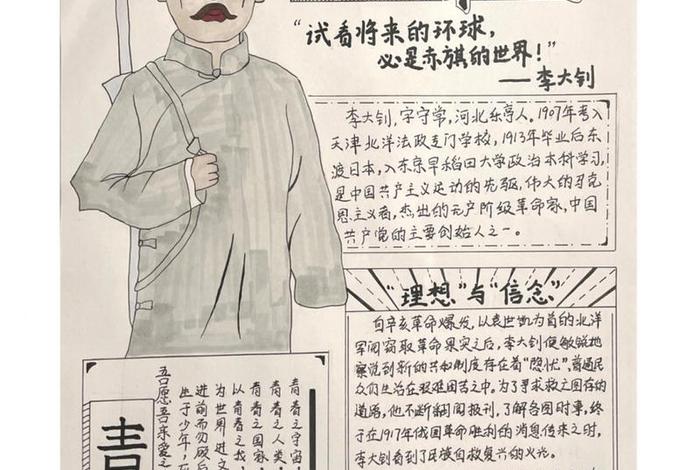 “试看将来的环球，
必是赤旗的世界！”
——李大钊
李大钊，字守常，河北乐亭人，1907年考入
天津北洋法政专门学校，1913年毕业后东
渡日本，入东京早稻田大学政治本科学习，
是中国共产主义运动的先驱，伟大的马克
思主义者，杰出的无产阶级革命家，中国
共产党的主要创始人之一。
“理想”与“信念”
自辛亥革命爆发，以袁世凯为首的北洋
军阀窃取革命果实之后，李大钊便敏锐地
察觉到新的共和制度存在着“隐忧”，普通民
众们生活在艰难困苦之中，为了寻求救亡图存的
道路，他不断翻阅报刊，了解各国时事，终
于在1917年俄国革命胜利的消息传来之时，
李大钊看到了民族自救复兴的火光。
青春之宇宙，
青春之人类，
青春之国家，
以青春之我，
为世界进文
进前而勿顾后
坐于少年，
吾愿吾亲爱之
青